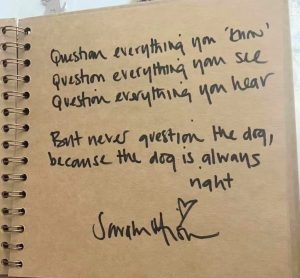 Question everything you 'know'
Question everything you see
Question everything you hear
But never question the dog,
because the dog is always
right